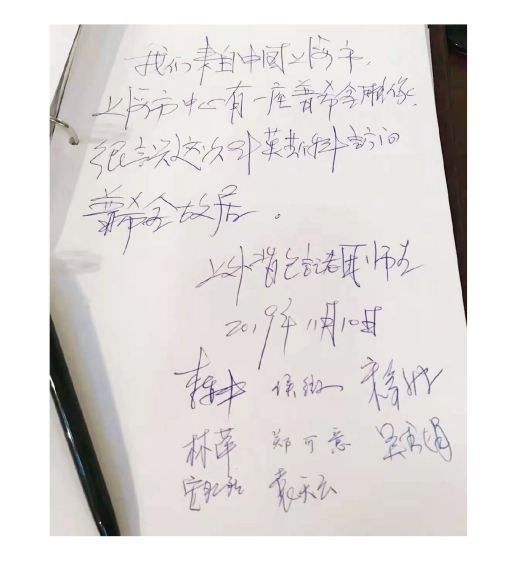 我们来自中国上海市，
上海市中心有一座普希金雕像，
很高兴这次到莫斯科访问
普希金故居。
上外背包记者团师生
2019年11月10日
林萍 郑可意